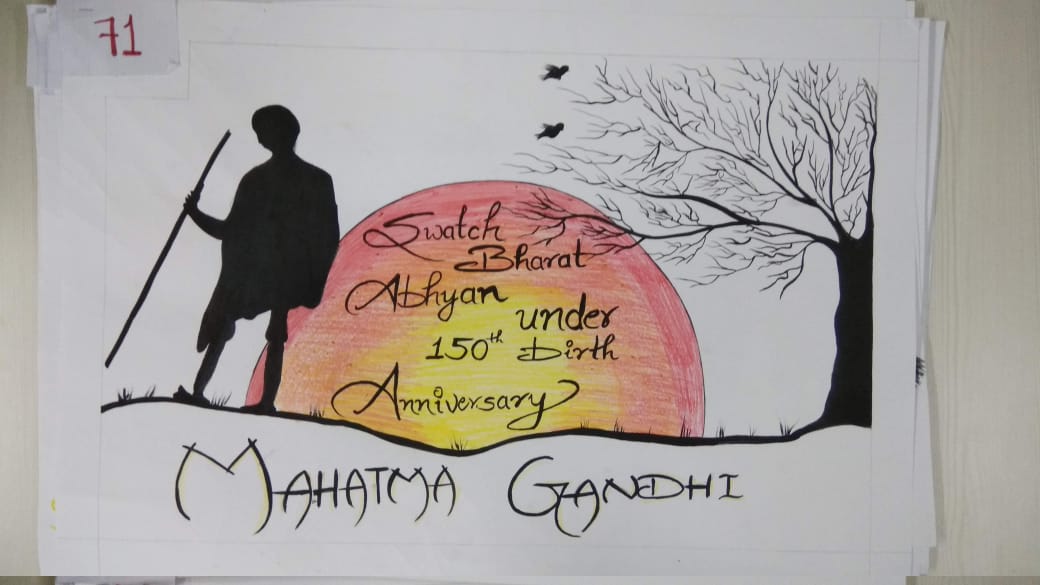 71
Swatch
Bharat
Abhyan
under
150th Birth
Anniversary
MAHATMA GANDHI